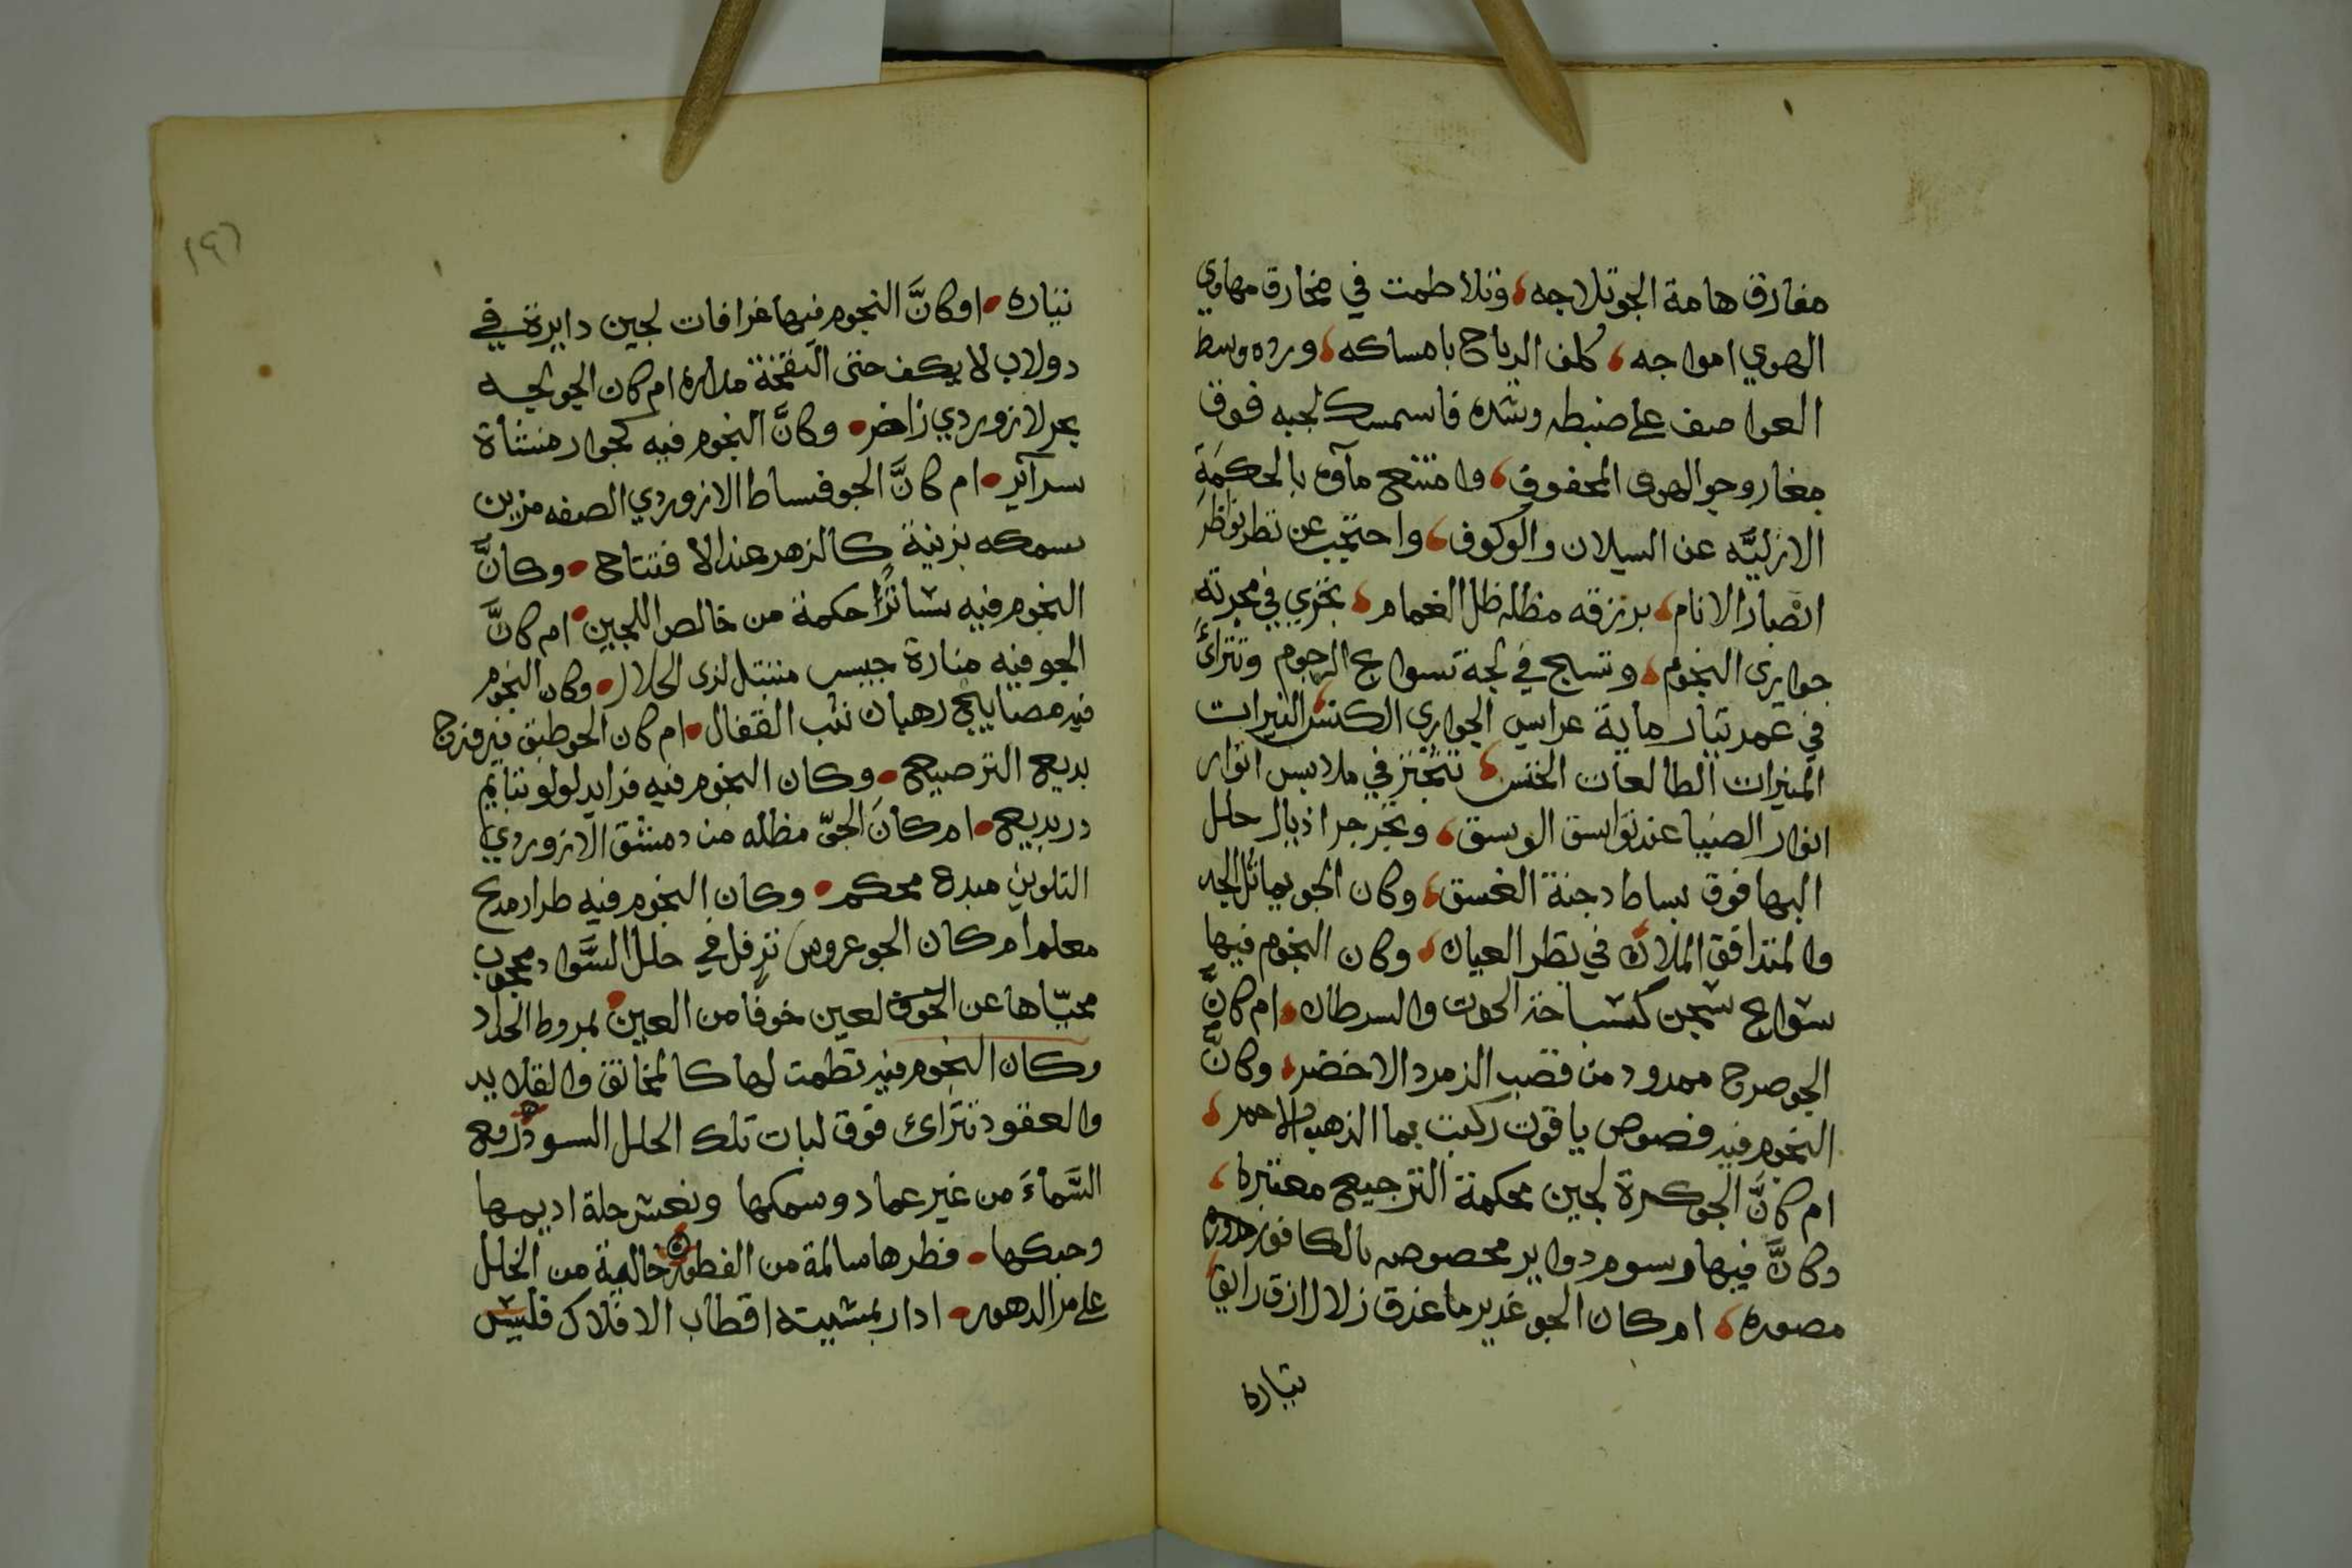 مفارق هامة الجو تلاجه، وتلاطمت في مخارق مهاوي
الهوي امواجه، كلف الرياح بامساكه، ورده وسط
العواصف على ضبطه وشده فاسمسك لجبه فوق
مغار وجو الهوى المخفوق، وامتنع مآوه بالحكمة
الازليه عن السيلان والوكوف، واحتجب عن نظر نواظر
انصار الانام، برزقه مظله ظل الغمام، تجري في مجرته
جواري النجوم، وتسبح في لجة تسواع الرجوم وتترائ
في عمد تيار ماية عرايس الجواري الكنس النيرات
المنيرات الطالعات الخنس، تتبختر في ملابس انوار
انوار الضيا عند تواسق الوسق، وتجرجر اذيال حلل
البها فوق بساط دجنة الغسق، وكان الجو يماثل الجد
والمتدافق الملان في نظر العيان، وكان النجوم فيها
سواع شجن كسباخة الحوت والسرطان، ام كانَّ
الجو صرح ممدود من قصب الزمرد الاخضر، وكانَّ
النجوم فيه فصوص ياقوت ركبت بما الذهب الاحمر،
ام كانَّ الجو كرة لجين محكمة الترجيع معتبره،
وكانَّ فيها رسوم دواير مخصوصه بالكافور مدوره
مصوره، ام كان الجو غدير ما غدق زلال ازق رايق
تياره
١٩٦
تياره، او كانَّ النجوم فيها غرافات لجين دايرة في
دولاب لا يكف حتى النفخة مداره ام كان الجو لجه
بحر لازوردي زاخر، وكانَّ النجوم فيه كجوار منشأة
سرآئر، ام كانَّ الجو فسطاط الازوردي الصفه مزين
سمكه بزينة كالزهر عند الافتتاح، وكانَّ
النجوم فيه بشائرًا حكمة من خالص اللجين، ام كانَّ
الجو فيه منارة حبيس متبتل لذى الجلال، وكان النجوم
فيه مصابيح رهبان تشب القفال، ام كان الجو طبق فيروزج
بديع الترصيع، وكان النجوم فيه فرايد لولو تتايم
در بديع، ام كانَ الجوّ مظله من دمشق الازوردي
التلوين مبدع محكم، وكان النجوم فيه طراز مدبج
معلم ام كان الجو عروس ترفل في حلل السَّواد محجوب
محيّاها عن الحوق لعين خوفًا من العين، بمروط الحداد
وكان النجوم فيه نظمت لها كالمخانق والقلايد
والعقود تترائ فوق لبات تلك الحلل السود رفع
السَّماءَ من غير عماد وسمكها ونعش حلة اديمها
وحبكها، فطرها سالمة من الفطور خالية من الخلل
على مر الدهور، ادار بمشيته اقطاب الافلاك فليس